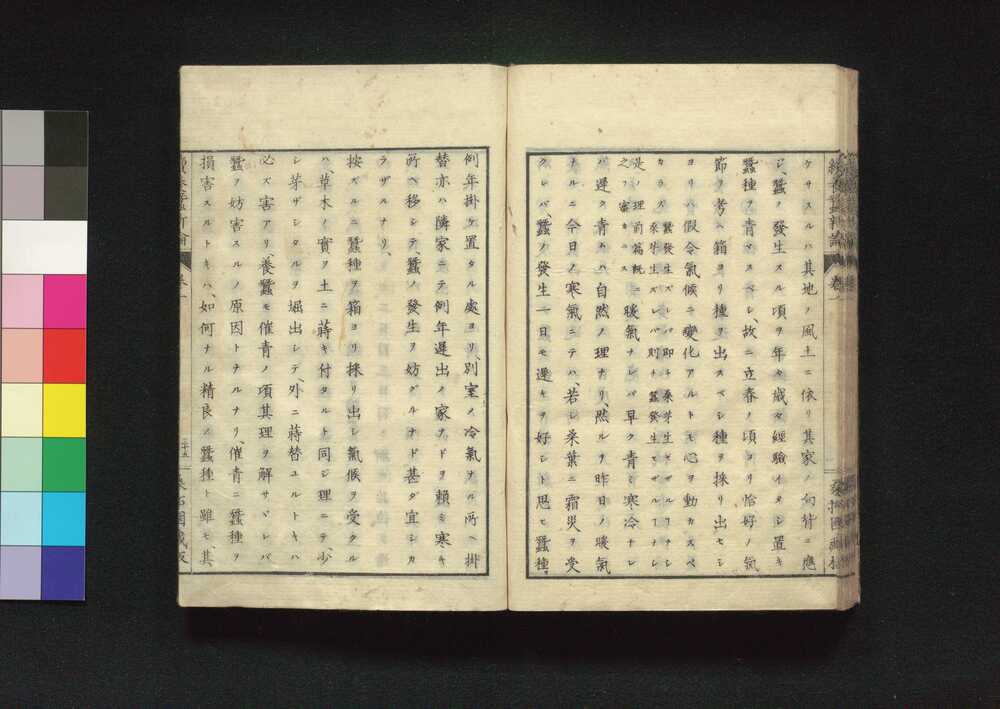 ケサスルハ其地ノ風土ニ依リ其家ノ向背ニ應
ジ、蠶ノ發生スル頃ヲ年々歳々經驗イタシ置キ
蠶種ヲ青マスベシ、故ニ立春ノ頃ヨリ恰好ノ氣
節ヲ考ヘ箱ヨリ種ヲ出スベシ種ヲ採リ出セシ
ヨリハ假令氣候ニ變化アルトモ心ヲ動カスベ
カラズ
蠶發生ズレバ即チ桑芽生ゼザルナシ
桑芽生ズレバ則チ蠶發生セザルナシ
是ノ理前篇既ニ
之ヲ審カニス
暖氣ナレバ早ク青ミ寒冷ナレ
バ遲ク青ムハ自然ノ理ナリ、然ルヲ昨日ノ暖氣
ナルニ今日ノ寒氣ニテハ、若シ桑葉ニ霜災ヲ受
クレバ、蠶ノ發生一日モ遲キヲ好シト思ヒ蠶種
例年掛ケ置タル處ヨリ、別室ノ冷氣ナル所ヘ掛
替亦ハ隣家ニテ例年遲出ノ家ナドヲ賴ミ寒キ
所ヘ移シテ、蠶ノ發生ヲ妨グルナド甚ダ宜シカ
ラザルナリ、
按ズルニ蠶種ヲ箱ヨリ採リ出シ氣候ヲ受クル
ハ、草木ノ實ヲ土ニ蒔キ付タルト同ジ理ニテ、少
シ芽ザシタルヲ堀出シテ、外ニ蒔替ユルトキハ
必ズ害アリ、養蠶モ催青ノ頃其理ヲ解サヾレバ
蠶ノ妨害スルノ原因トナルナリ、催青ニ蠶種ヲ
損害スルトキハ、如何ナル精良ノ蠶種ト雖モ、其
卷一
二十五